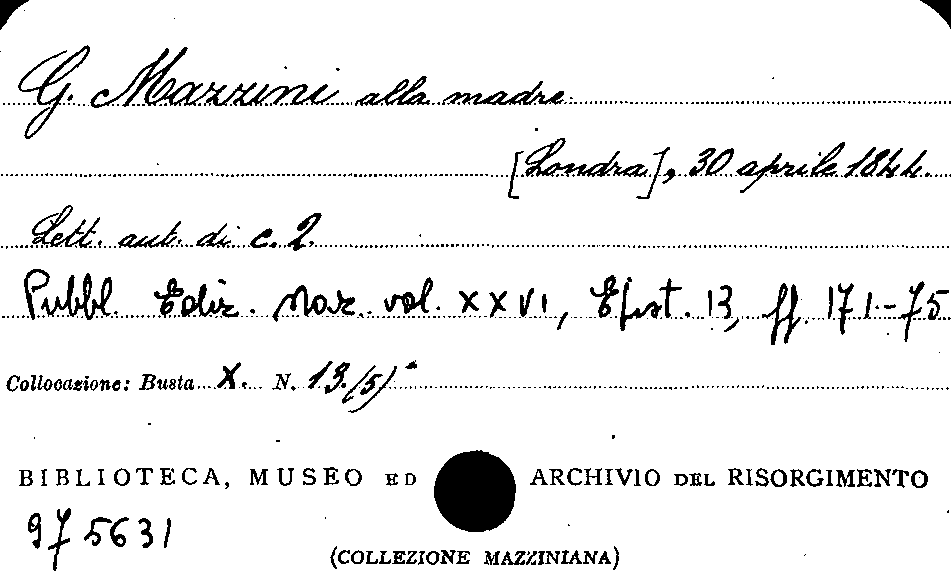 G. Mazzini alla madre.
[Londra], 30 aprile 1844.
Lett. aut. di c. 2.
Pubbl. Ediz. Naz. vol. XXVI, Epist. 13, pp. 171-75
Collocazione: Busta X. N. 13.(5)
BIBLIOTECA, MUSEO ED ARCHIVIO DEL RISORGIMENTO
975631
(COLLEZIONE MAZZINIANA)